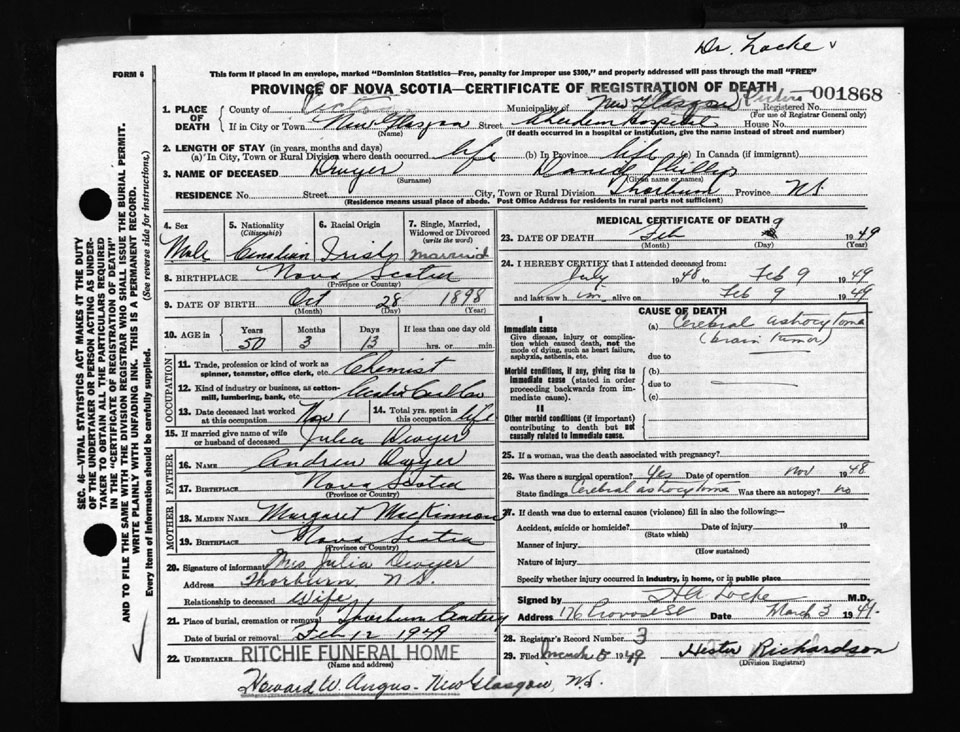 Dr. Locke
FORM 6
This form if placed in an envelope, marked "Dominion Statistics—Free, penalty for improper use $300," and properly addressed will pass through the mail "FREE"
PROVINCE OF NOVA SCOTIA—CERTIFICATE OF REGISTRATION OF DEATH
001868
1. PLACE OF DEATH
County of Pictou Municipality of New Glasgow Pictou Registered No.
(For use of Registrar General only)
If in City or Town New Glasgow Street Aberdeen Hospital House No.
(Name) (If death occurred in a hospital or institution, give the name instead of street and number)
2. LENGTH OF STAY (in years, months and days)
(a) In City, Town or Rural Division where death occurred life (b) In Province life (c) In Canada (if immigrant)
3. NAME OF DECEASED Dwyer Daniel Phillip
(Surname) (Given name or names)
RESIDENCE No. Street City, Town or Rural Division Thorburn Province N.S.
(Residence means usual place of abode. Post Office Address for residents in rural parts not sufficient)
4. Sex Male
5. Nationality (Citizenship) Canadian
6. Racial Origin Irish
7. Single, Married, Widowed or Divorced (write the word) married
8. BIRTHPLACE Nova Scotia
(Province or Country)
9. DATE OF BIRTH Oct 28 1898
(Month) (Day) (Year)
10. AGE in Years Months Days If less than one day old
50 3 13 hrs. or min.
OCCUPATION
11. Trade, profession or kind of work as spinner, teamster, office clerk, etc. Chemist
12. Kind of industry or business, as cotton-mill, lumbering, bank, etc. Acadia Coal Co
13. Date deceased last worked at this occupation Nov 1
14. Total yrs. spent in this occupation life
15. If married give name of wife or husband of deceased Julia Dwyer
FATHER
16. NAME Andrew Dwyer
17. BIRTHPLACE Nova Scotia
(Province or Country)
MOTHER
18. MAIDEN NAME Margaret MacKinnon
19. BIRTHPLACE Nova Scotia
(Province or Country)
20. Signature of informant Mrs Julia Dwyer
Address Thorburn, N.S.
Relationship to deceased Wife
21. Place of burial, cremation or removal Thorburn Cemetery
Date of burial or removal Feb 12 1949
22. UNDERTAKER RITCHIE FUNERAL HOME
(Name and address)
Howard W. Angus - New Glasgow, N.S.
MEDICAL CERTIFICATE OF DEATH
23. DATE OF DEATH Feb 9 1949
(Month) (Day) (Year)
24. I HEREBY CERTIFY that I attended deceased from:
July 1948 to Feb 9 1949
and last saw him alive on Feb 9 1949
CAUSE OF DEATH
I
Immediate cause
Give disease, injury or complication which caused death, not the mode of dying, such as heart failure, asphyxia, asthenia, etc.
(a) Cerebral astrocytoma
(brain tumor)
due to
Morbid conditions, if any, giving rise to immediate cause (stated in order proceeding backwards from immediate cause).
(b)
due to
(c)
II
Other morbid conditions (if important) contributing to death but not causally related to immediate cause.
25. If a woman, was the death associated with pregnancy?
26. Was there a surgical operation? Yes Date of operation Nov 1948
State findings Cerebral astrocytoma Was there an autopsy? no
27. If death was due to external causes (violence) fill in also the following:—
Accident, suicide or homicide? Date of injury 19
(State which)
Manner of injury
(How sustained)
Nature of injury
Specify whether injury occurred in industry, in home, or in public place
Signed by H A Locke M.D.
Address 176 Provost St Date March 3 1949.
28. Registrar's Record Number 3
29. Filed March 5 1949 Hester Richardson
(Division Registrar)
SEC. 46—VITAL STATISTICS ACT MAKES IT THE DUTY
OF THE UNDERTAKER OR PERSON ACTING AS UNDER-
TAKER TO OBTAIN ALL THE PARTICULARS REQUIRED
IN THE "CERTIFICATE OF REGISTRATION OF DEATH"
AND TO FILE THE SAME WITH THE DIVISION REGISTRAR WHO SHALL ISSUE THE BURIAL PERMIT.
WRITE PLAINLY WITH UNFADING INK. THIS IS A PERMANENT RECORD.
Every item of information should be carefully supplied. (See reverse side for instructions.)